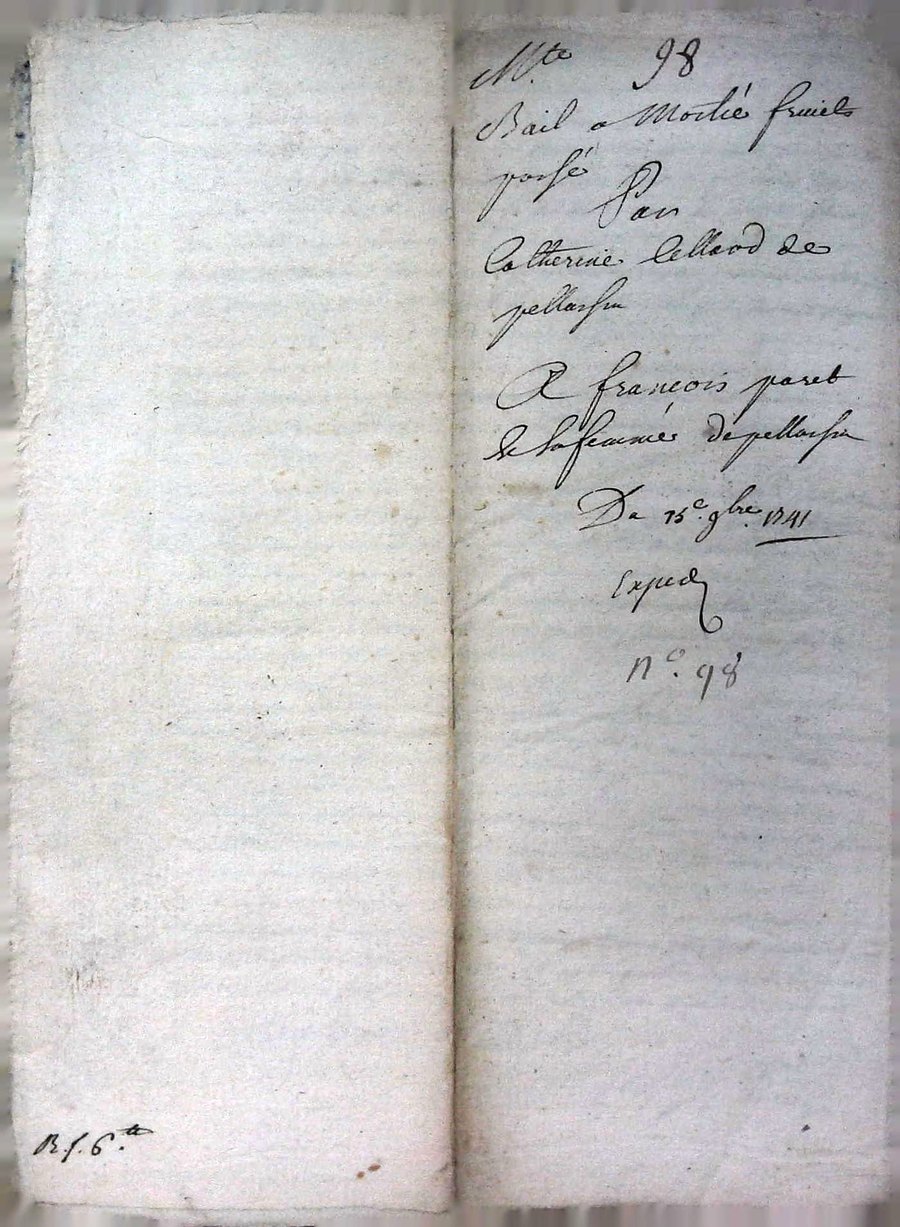 Mte 98
Bail a Moitié fruicts
passé
Par
Catherine Cellard de
pellussin
A françois paret
& sa femme de pellussin
Du 15e 9bre 1741
Exped
n° 98
R. f. 6.tt